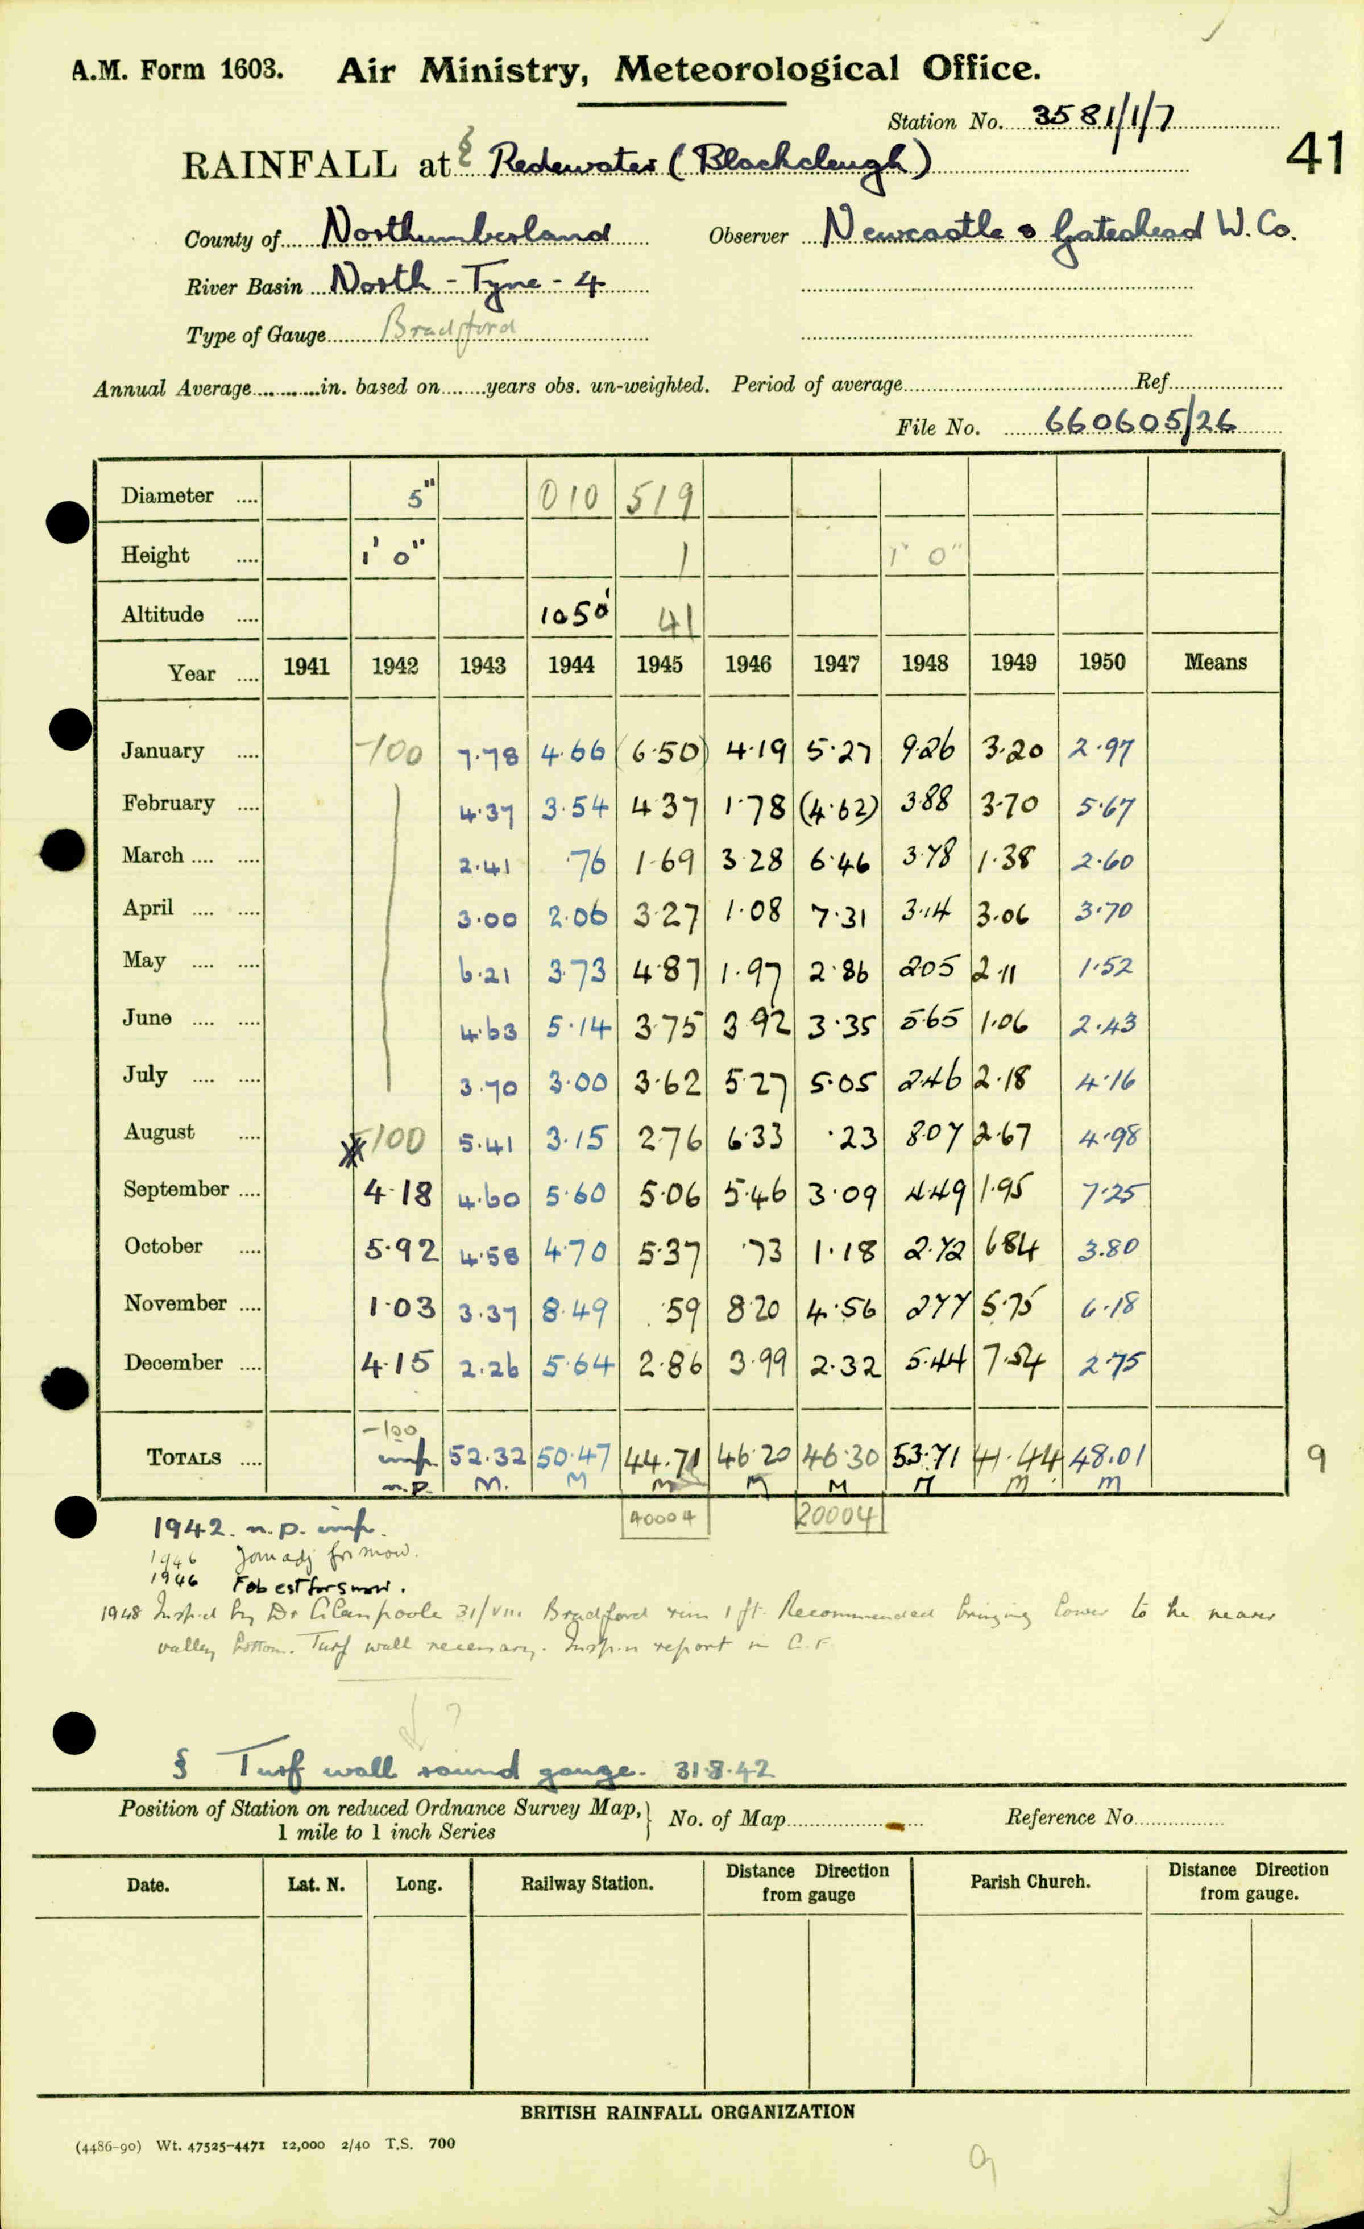 A.M. Form 1603. Air Ministry, Meteorological Office.
Station No. 3581/1/7
41
RAINFALL at § Redewater (Blackcleugh)
County of Northumberland Observer Newcastle & Gateshead W. Co.
River Basin North - Tyne - 4
Type of Gauge Bradford
Annual Average in. based on years obs. un-weighted. Period of average Ref
File No. 660605/26
Diameter 5" 010 519
Height 1' 0" 1 1' 0"
Altitude 1050' 41
Year 1941 1942 1943 1944 1945 1946 1947 1948 1949 1950 Means
January -100 7.78 4.66 (6.50) 4.19 5.27 9.26 3.20 2.97
February 4.37 3.54 4.37 1.78 (4.62) 3.88 3.70 5.67
March 2.41 .76 1.69 3.28 6.46 3.78 1.38 2.60
April 3.00 2.06 3.27 1.08 7.31 3.14 3.06 3.70
May 6.21 3.73 4.87 1.97 2.86 2.05 2.11 1.52
June 4.63 5.14 3.75 3.92 3.35 5.65 1.06 2.43
July 3.70 3.00 3.62 5.27 5.05 2.46 2.18 4.16
August -100 5.41 3.15 2.76 6.33 .23 8.07 2.67 4.98
September 4.18 4.60 5.60 5.06 5.46 3.09 4.49 1.95 7.25
October 5.92 4.58 4.70 5.37 .73 1.18 2.72 6.84 3.80
November 1.03 3.37 8.49 .59 8.20 4.56 2.77 5.75 6.18
December 4.15 2.26 5.64 2.86 3.99 2.32 5.44 7.54 2.75
-100
TOTALS imp. 52.32 50.47 44.71 46.20 46.30 53.71 41.44 48.01 9
n.p. M. M M M M M m m
40004 20004
1942. n.p. imp.
1946 Jan adj for snow.
1946 Feb est for snow.
1948 Insp.d by Dr Glasspoole 31/VIII Bradford rim 1 ft. Recommended bringing lower to be nearer
valley bottom. Turf wall necessary. Insp.n report in C.F.
?
§ Turf wall round gauge. 31.8.42
Position of Station on reduced Ordnance Survey Map, No. of Map Reference No.
1 mile to 1 inch Series
Date. Lat. N. Long. Railway Station. Distance Direction from gauge Parish Church. Distance Direction from gauge.
BRITISH RAINFALL ORGANIZATION
(4486-90) Wt. 47525-4471 12,000 2/40 T.S. 700
9